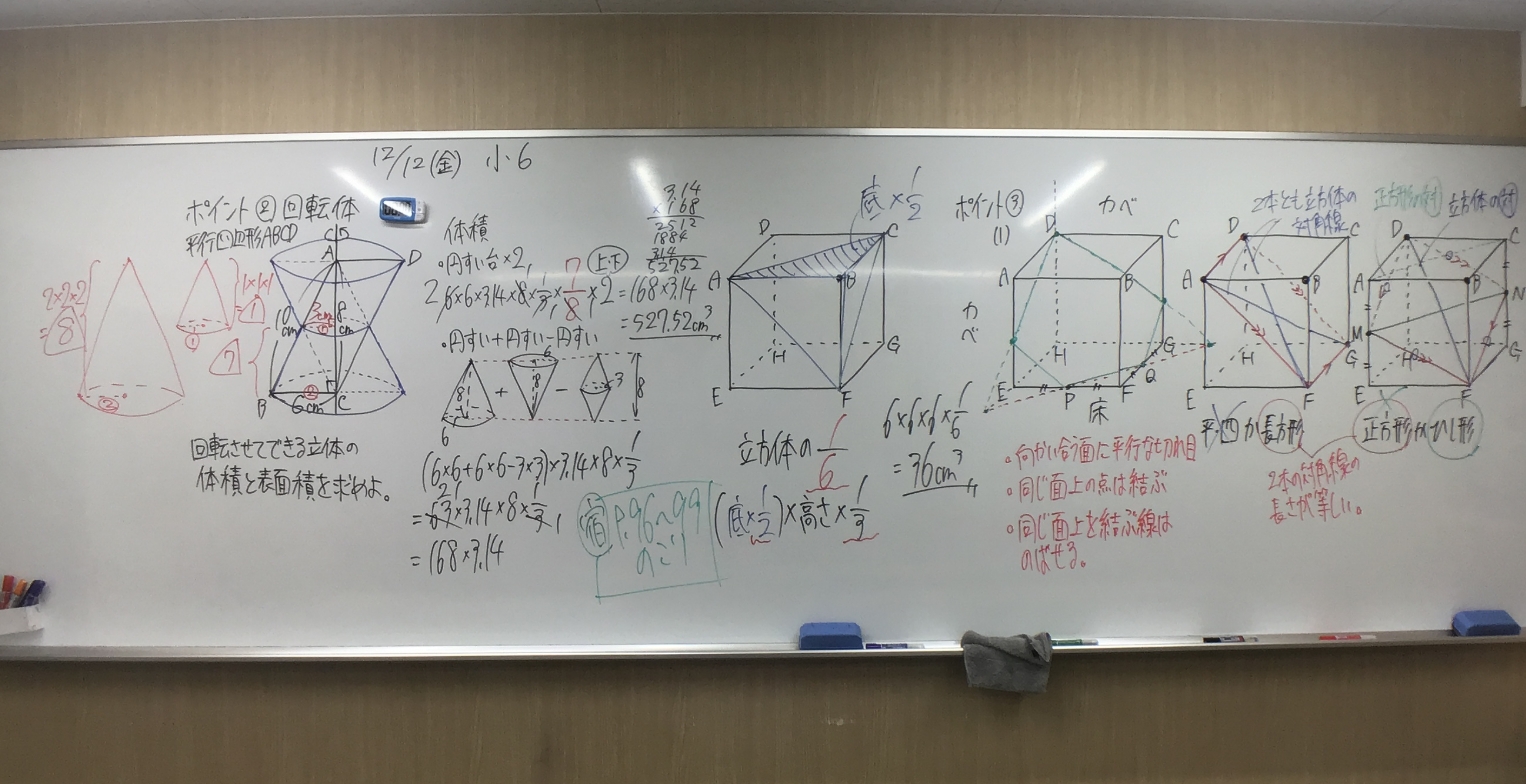 12/12(金) 小6
ポイント② 回転体
平行四辺形ABCD
2×2×2
=8
1×1×1
=1
7
①
②
C
A
D
10
cm
3cm
8
cm
B
6cm
C
回転させてできる立体の
体積と表面積を求めよ。
体積
・円すい台×2
上下
6×6×3.14×8×1/3×7/8×2=168×3.14
=527.52cm³
3.14
×168
2512
1884
314
527.52
・円すい+円すい-円すい
8
6
+
6
8
-
3
8
(6×6+6×6-3×3)×3.14×8×1/3
=63×3.14×8×1/3
=168×3.14
宿 P.96~99
のこり
底×1/2
D
C
A
B
H
G
E
F
立方体の1/6
6×6×6×1/6
=36cm³
(底×1/2)×高さ×1/3
ポイント③
(1)
カベ
D
C
A
B
カベ
H
G
E
P
F
Q
床
・向かい合う面に平行な切れ目
・同じ面上の点は結ぶ
・同じ面上を結ぶ線は
のばせる。
2本とも立方体の
対角線
D
C
A
B
H
G
E
F
平四か長方形
2本の対角線の
長さが等しい。
正方形の対
立方体の対
D
C
A
B
N
M
H
G
E
F
正方形かひし形